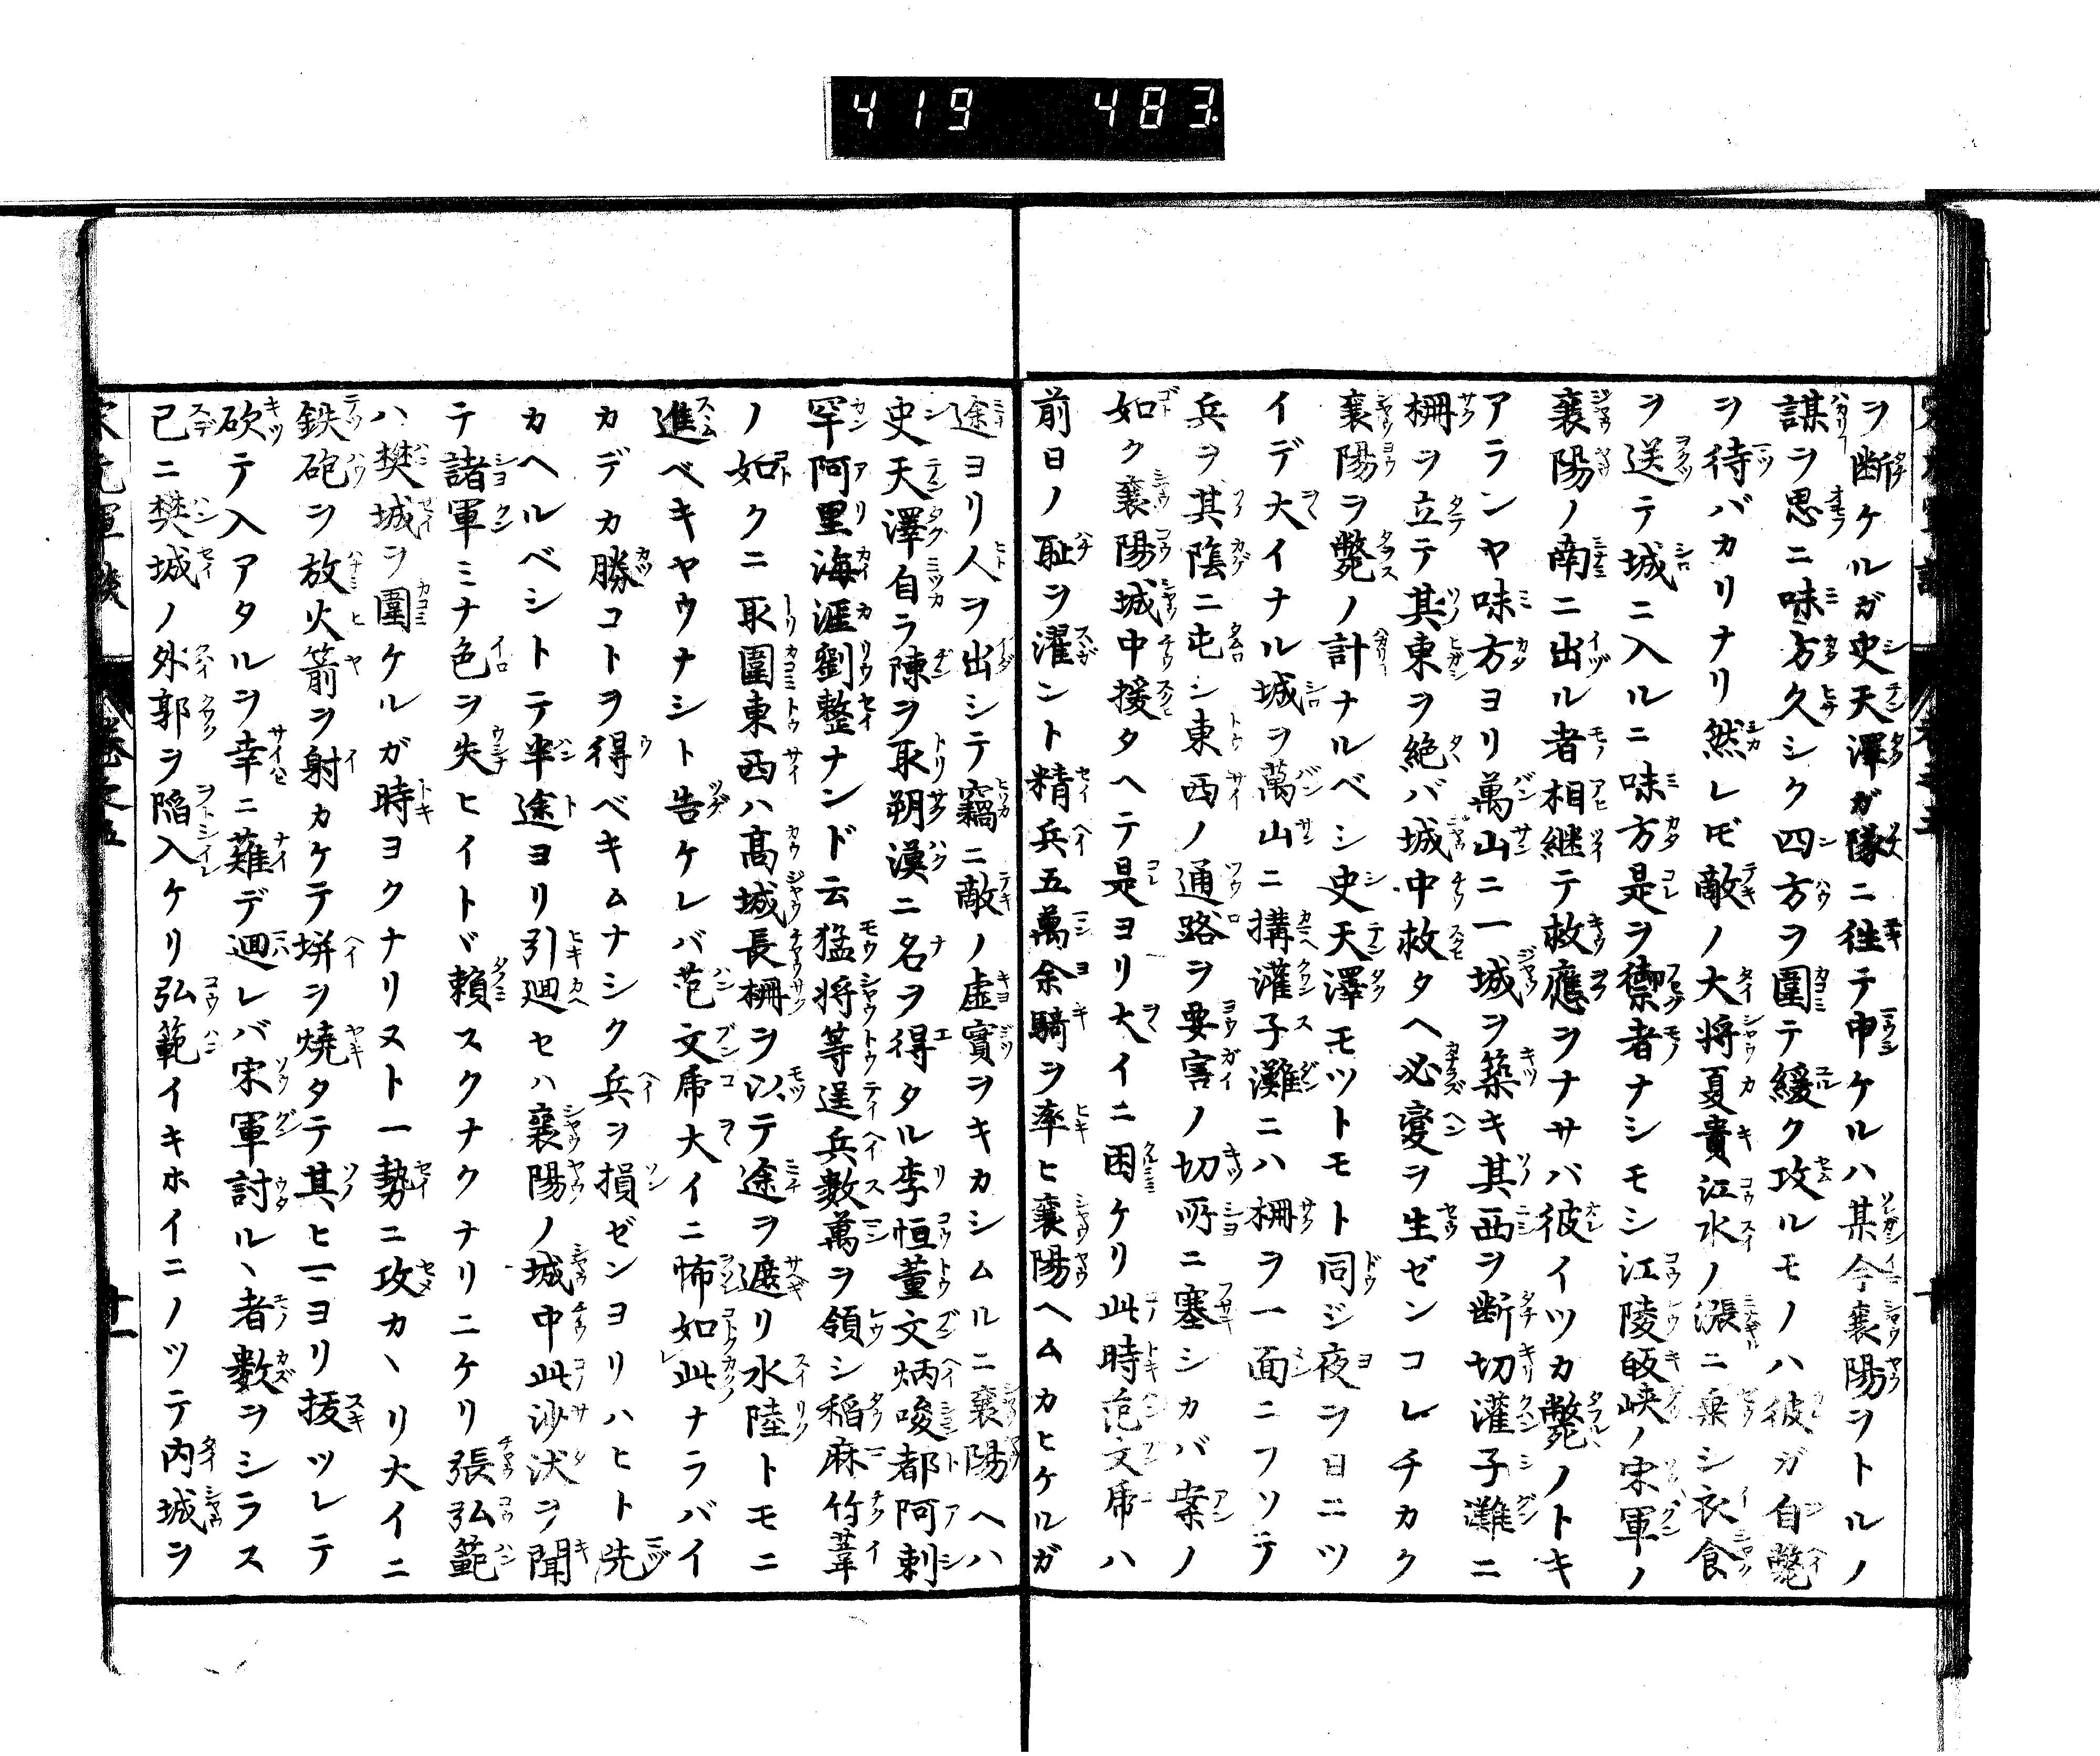 419 483
ヲ断ケルガ史天澤ガ隊ニ徃テ申ケルハ某今襄陽ヲトルノ
謀ヲ思ニ味方久シク四方ヲ圍テ緩ク攻ルモノハ彼ガ自斃
ヲ待バカリナリ然レ𪜈敵ノ大将夏貴江水ノ漲ニ乗シ衣食
ヲ送テ城ニ入ルニ味方是ヲ禦者ナシモシ江陵峡ノ宋軍ノ
襄陽ノ南ニ出ル者相継テ救應ヲナサバ彼イツカ斃ノトキ
アランヤ味方ヨリ萬山ニ一城ヲ築キ其西ヲ断切灌子灘ニ
柵ヲ立テ其東ヲ絶バ城中救タヘ必変ヲ生ゼンコレチカク
襄陽ヲ斃ノ計ナルベシ史天澤モツトモト同ジ夜ヲ日ニツ
イデ大イナル城ヲ萬山ニ搆灌子灘ニハ柵ヲ一面ニフソテ
兵ヲ其陰ニ屯シ東西ノ通路ヲ要害ノ切所ニ塞シカバ案ノ
如ク襄陽城中援タヘテ是ヨリ大イニ困ケリ此時范文虎ハ
前日ノ耻ヲ濯ント精兵五萬余騎ヲ率ヒ襄陽ヘムカヒケルガ
途ヨリ人ヲ出シテ竊ニ敵ノ虚實ヲキカシムルニ襄陽ヘハ
史天澤自ラ陳ヲ取朔漠ニ名ヲ得タル李恒董文炳唆都阿剌
罕阿里海涯劉整ナンド云猛将等逞兵數萬ヲ領シ稲麻竹葦
ノ如クニ取圍東西ハ髙城長柵ヲ以テ途ヲ遮リ水陸トモニ
進ベキヤウナシト告ケレバ范文虎大イニ怖如此ナラバイ
カデカ勝コトヲ得ベキムナシク兵ヲ損ゼンヨリハヒト先
カヘルベシトテ半途ヨリ引廻セハ襄陽ノ城中此沙汰ヲ聞
テ諸軍ミナ色ヲ失ヒイトヾ頼スクナクナリニケリ張弘範
ハ樊城ヲ圍ケルガ時ヨクナリヌト一勢ニ攻カヽリ大イニ
鉄砲ヲ放火箭ヲ射カケテ塀ヲ焼タテ其ヒマヨリ抜ツレテ
砍テ入アタルヲ幸ニ薙デ廻レバ宋軍討ルヽ者数ヲシラス
已ニ樊城ノ外郭ヲ陥入ケリ弘範イキホイニノツテ内城ヲ
巻之五
十一